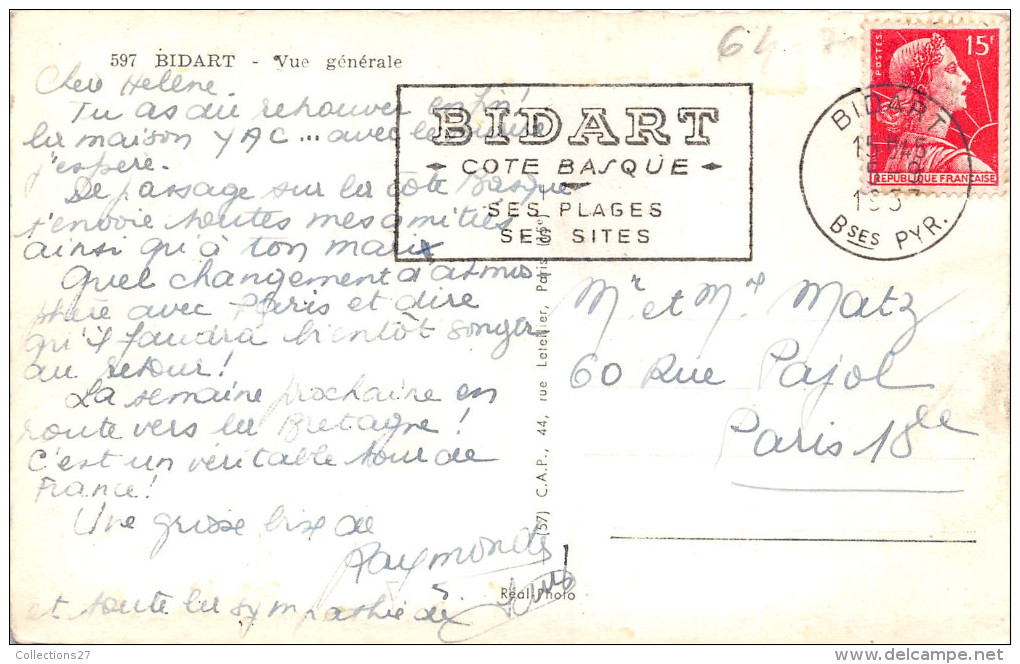 64
597 BIDART - Vue générale
Chère Hélène.
Tu as du retrouver enfin!
la maison YAC... avec le
j'espère.
De passage sur la côte Basque
t'envoie toutes mes amitiés
ainsi qu'à ton mari
Quel changement d'atmos
phère avec Paris et dire
qu'il faudra bientôt songer
au retour!
La semaine prochaine en
route vers la Bretagne!
C'est un véritable tour de
France!
Une grosse bise de
Raymonde
et toute la sympathie de
BIDART
COTE BASQUE
SES PLAGES
SES SITES
BIDART
15H45
Bses PYR.
POSTES
15F
REPUBLIQUE FRANCAISE
Mr et Me Matz
60 Rue Pajol
Paris 18e
(57) C.A.P., 44, rue Letellier, Paris (15e)
Réal-Photo
Collections27